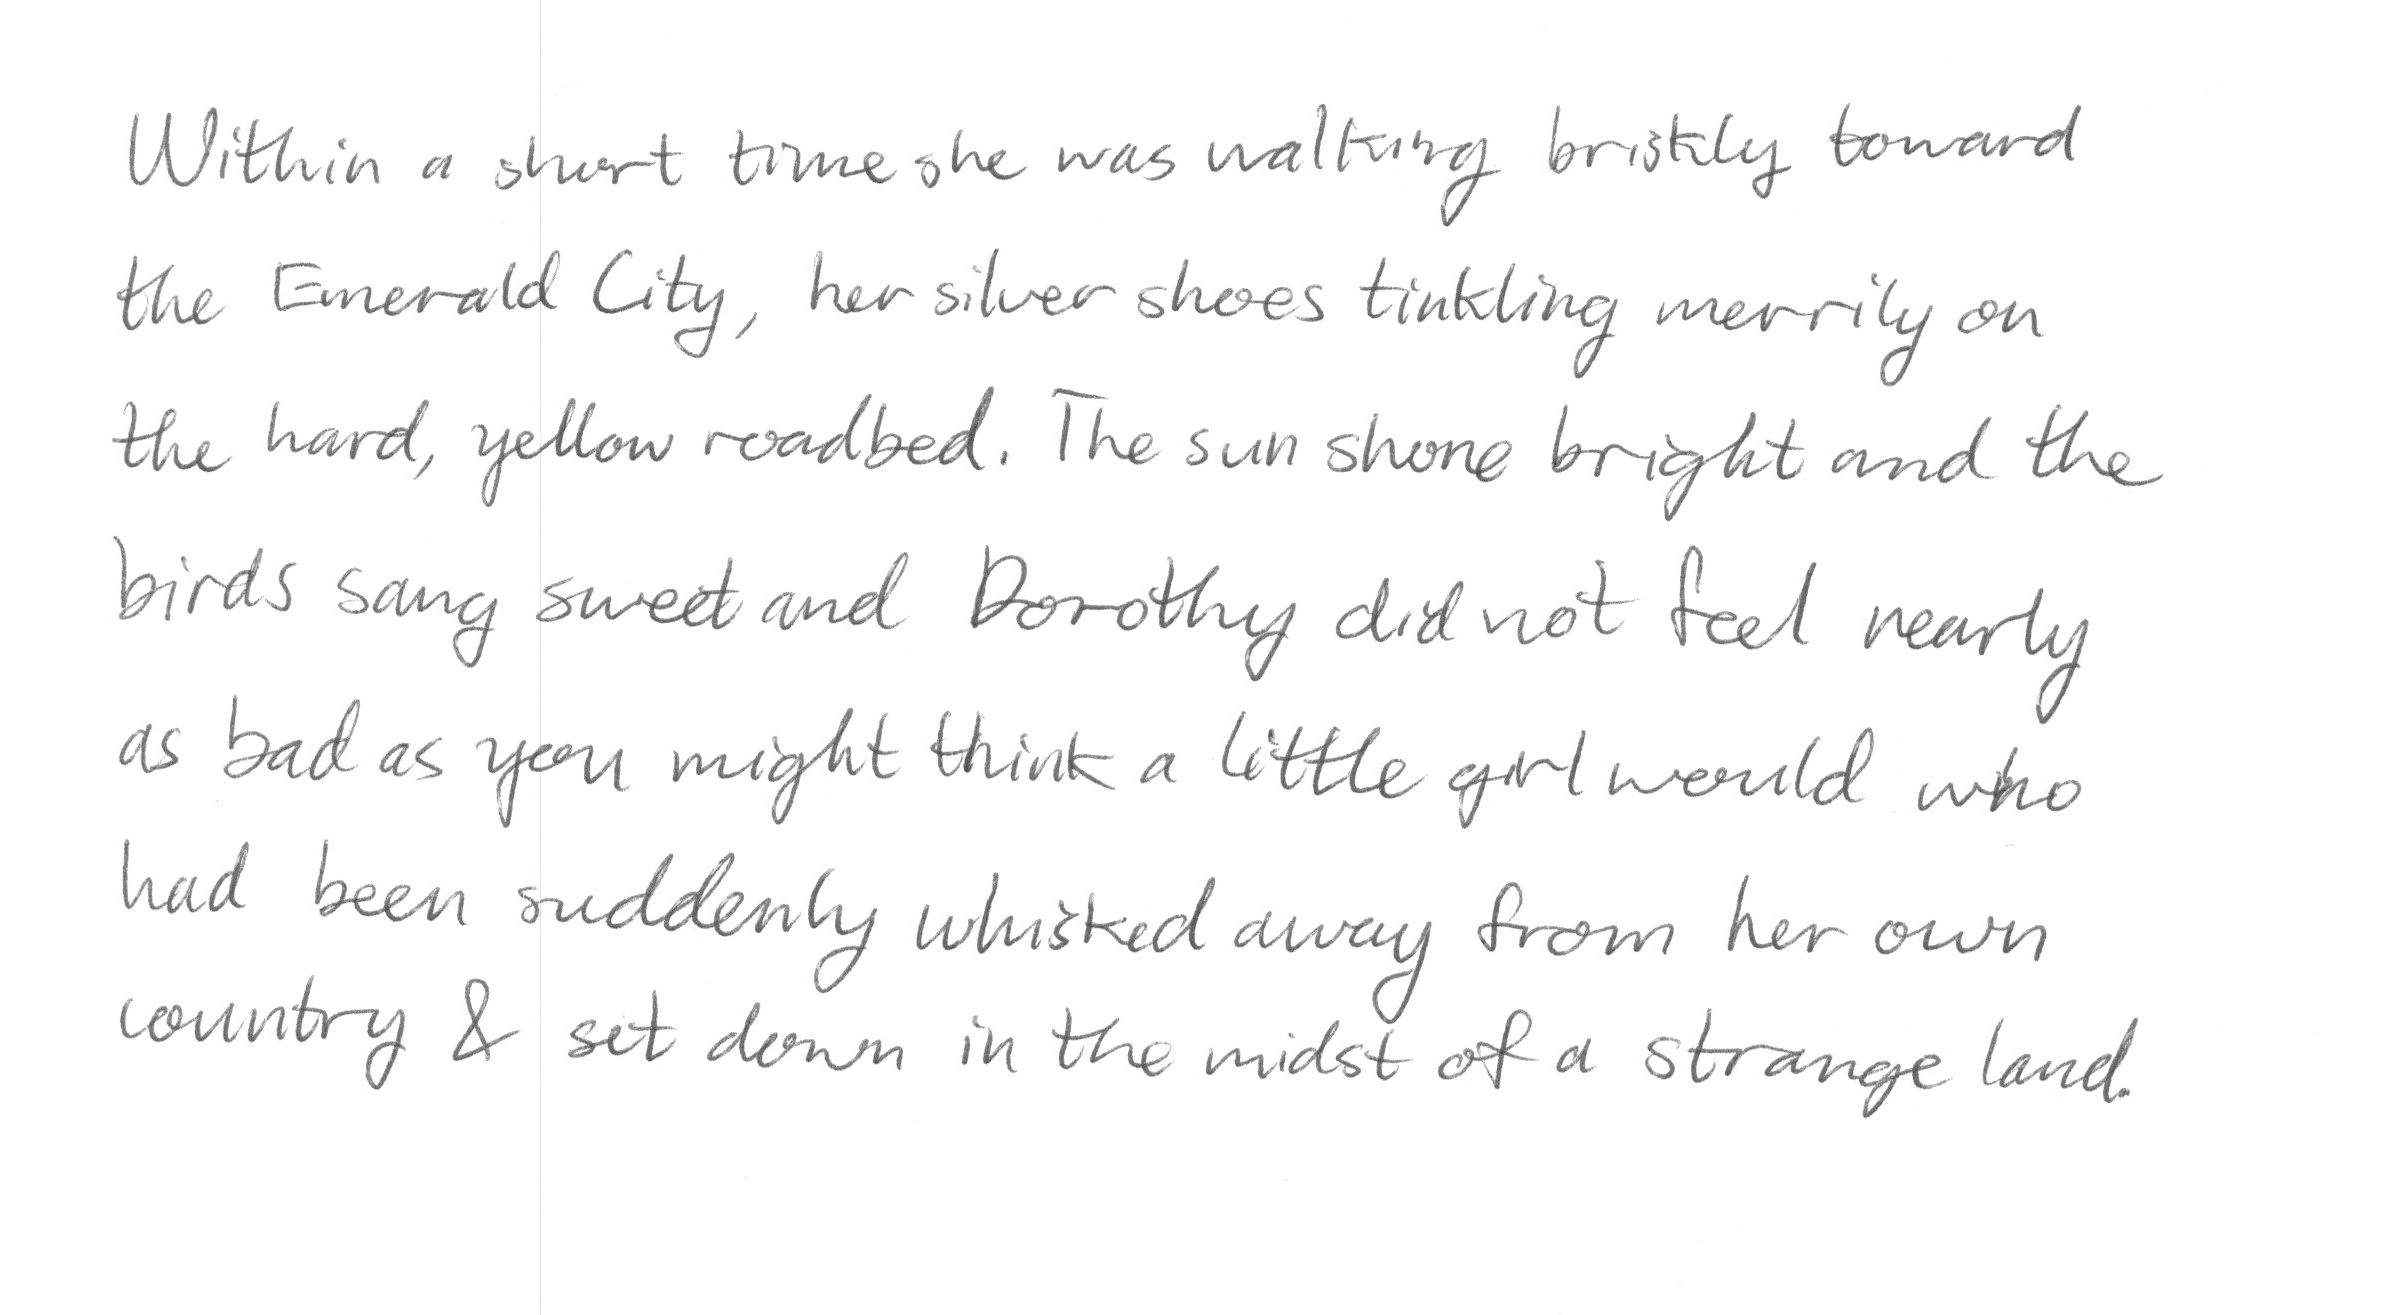 Within a short time she was walking briskly toward
the Emerald City, her silver shoes tinkling merrily on
the hard, yellow roadbed. The sun shone bright and the
birds sang sweet and Dorothy did not feel nearly
as bad as you might think a little girl would who
had been suddenly whisked away from her own
country & set down in the midst of a strange land.